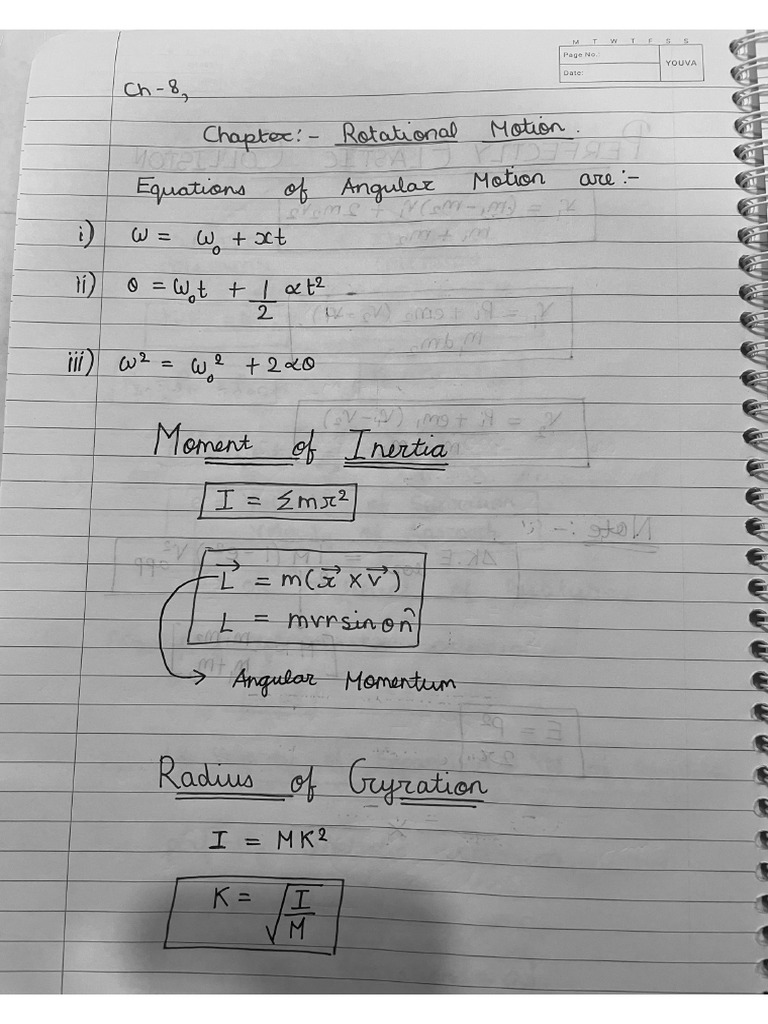 M T W T F S S
Page No.:
YOUVA
Date:
Ch-8,
Chapter:- Rotational Motion.
Equations of Angular Motion are:-
i) ω = ω₀ + xt
ii) θ = ω₀t + 1/2 αt²
iii) ω² = ω₀² + 2αθ
Moment of Inertia
I = Σmr²
L⃗ = m(r⃗ × v⃗)
L = mvr sin θ n̂
Angular Momentum
Radius of Gyration
I = MK²
K = √(I/M)